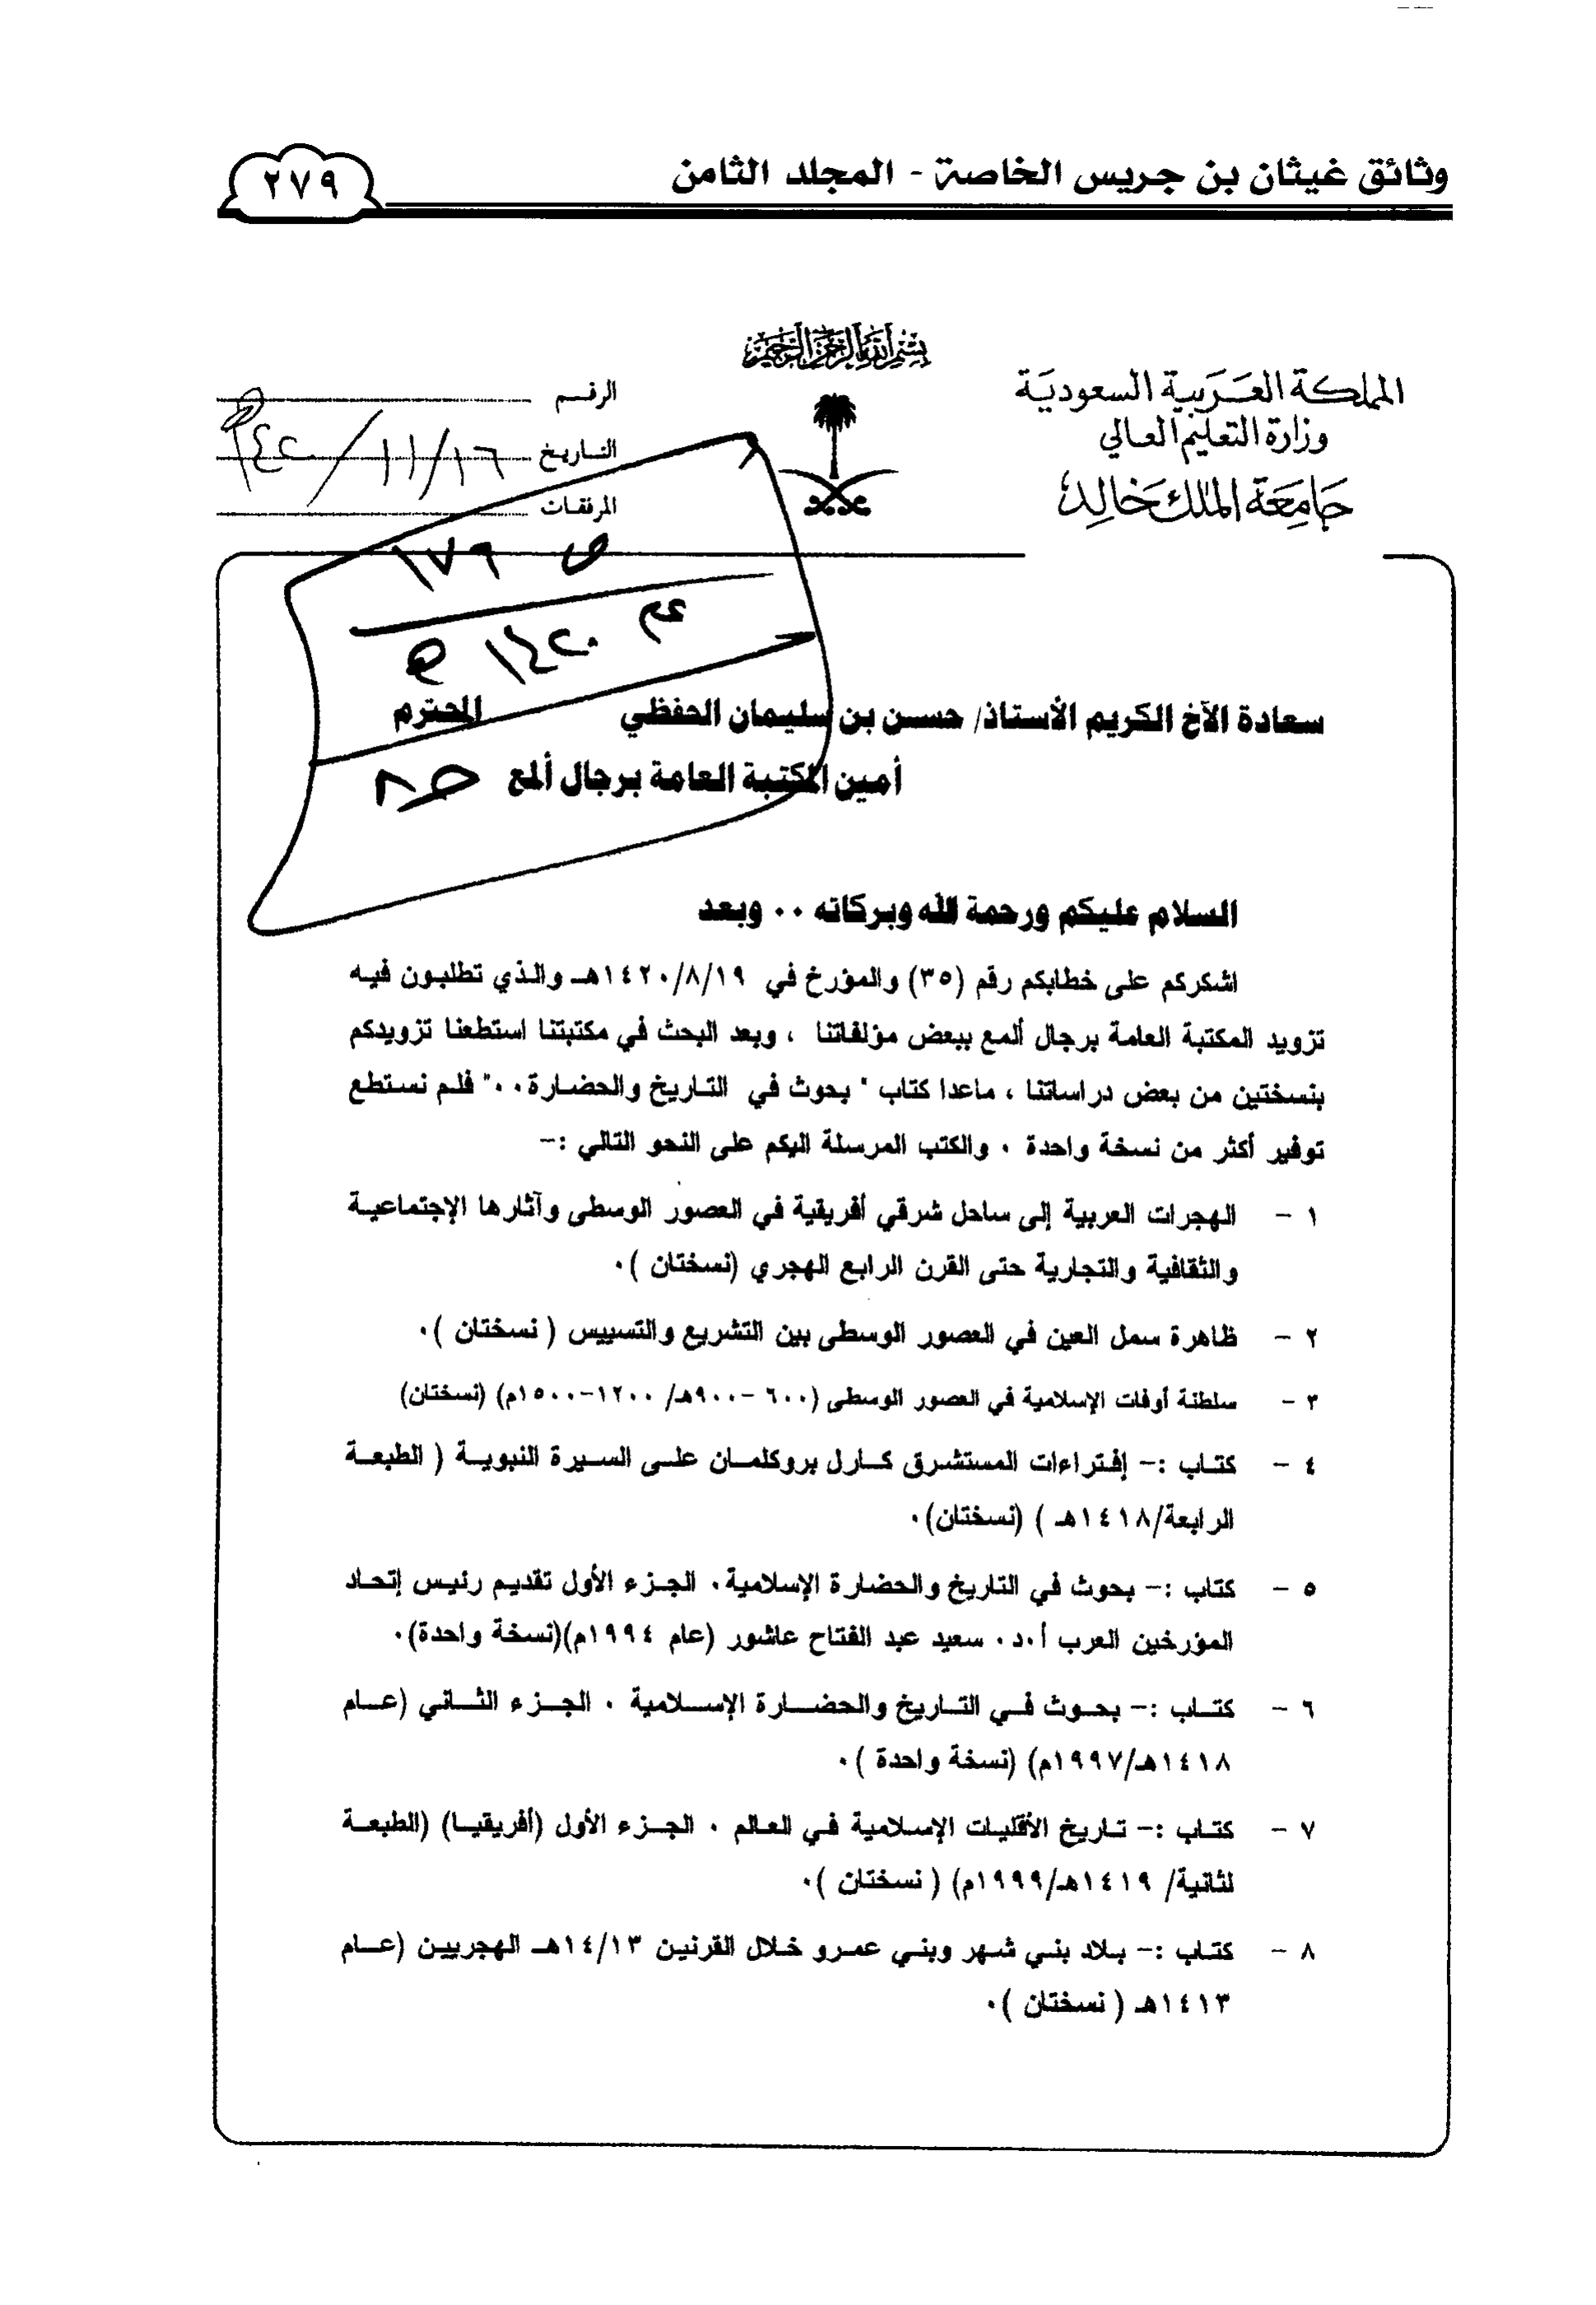 وثائق غيثان بن جريس الخاصة - المجلد الثامن
٢٧٩
بسم الله الرحمن الرحيم
المملكة العربية السعودية
وزارة التعليم العالي
جامعة الملك خالد
الرقم
التاريخ ١٦/١١/١٤٢٠هـ
المرفقات
ص ١٧٩
عم ١٤٢٠هـ
سعادة الأخ الكريم الأستاذ/ حسن بن سليمان الحفظي المحترم
أمين المكتبة العامة برجال ألمع
السلام عليكم ورحمة الله وبركاته .. وبعد
اشكركم على خطابكم رقم (٣٥) والمؤرخ في ١٤٢٠/٨/١٩هـ والذي تطلبون فيه
تزويد المكتبة العامة برجال ألمع ببعض مؤلفاتنا ، وبعد البحث في مكتبتنا استطعنا تزويدكم
بنسختين من بعض دراساتنا ، ماعدا كتاب " بحوث في التاريخ والحضارة.." فلم نستطع
توفير أكثر من نسخة واحدة . والكتب المرسلة اليكم على النحو التالي :-
١ - الهجرات العربية إلى ساحل شرقي أفريقية في العصور الوسطى وآثارها الإجتماعية
والثقافية والتجارية حتى القرن الرابع الهجري (نسختان ).
٢ - ظاهرة سمل العين في العصور الوسطى بين التشريع والتسييس ( نسختان ).
٣ - سلطنة أوفات الإسلامية في العصور الوسطى (٦٠٠ -٩٠٠هـ/ ١٢٠٠-١٥٠٠م) (نسختان)
٤ - كتاب :- إفتراءات المستشرق كارل بروكلمان على السيرة النبوية ( الطبعة
الرابعة/١٤١٨هـ ) (نسختان).
٥ - كتاب :- بحوث في التاريخ والحضارة الإسلامية. الجزء الأول تقديم رئيس إتحاد
المؤرخين العرب أ.د. سعيد عبد الفتاح عاشور (عام ١٩٩٤م)(نسخة واحدة).
٦ - كتاب :- بحوث في التاريخ والحضارة الإسلامية . الجزء الثاني (عام
١٤١٨هـ/١٩٩٧م) (نسخة واحدة ).
٧ - كتاب :- تاريخ الأقليات الإسلامية في العالم . الجزء الأول (أفريقيا) (الطبعة
لثانية/ ١٤١٩هـ/١٩٩٩م) ( نسختان ).
٨ - كتاب :- بلاد بني شهر وبني عمرو خلال القرنين ١٤/١٣هـ الهجريين (عام
١٤١٣هـ ( نسختان ).